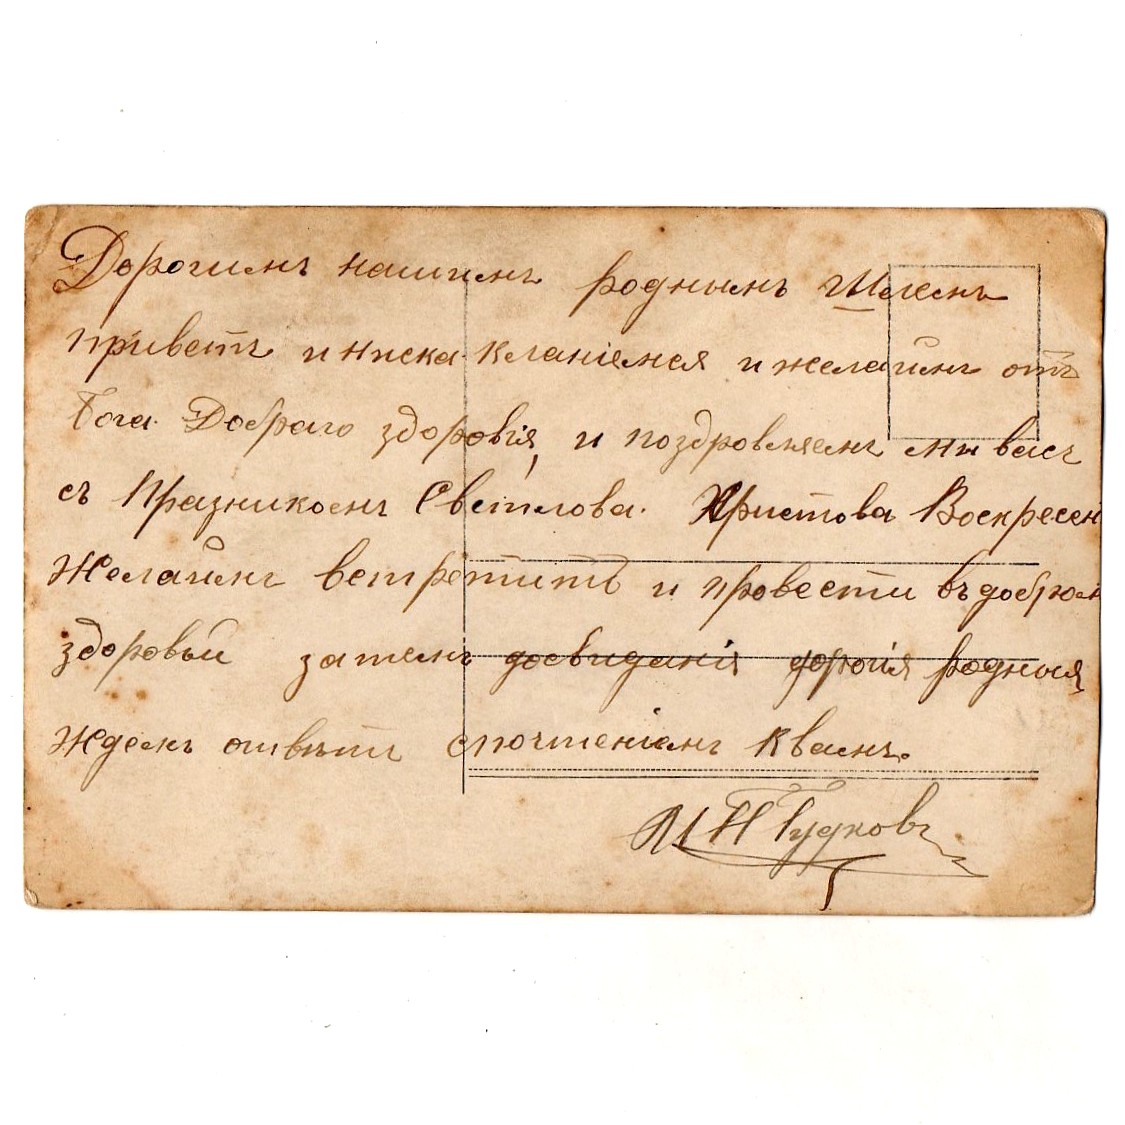 Дорогимъ нашимъ роднымъ Шлемъ
приветъ и ниска кланіемся и желаимъ отъ
Бога Добраго здоровія, и поздровляемъ мы васъ
съ Празникомъ Светлова. Христова Воскресен
Желаимъ встретить и провести въ добром
здоровьи затемъ досвиданія дорогія родныя
Ждемъ отвѣтъ спочтеніемъ К вамъ.
Гудковъ